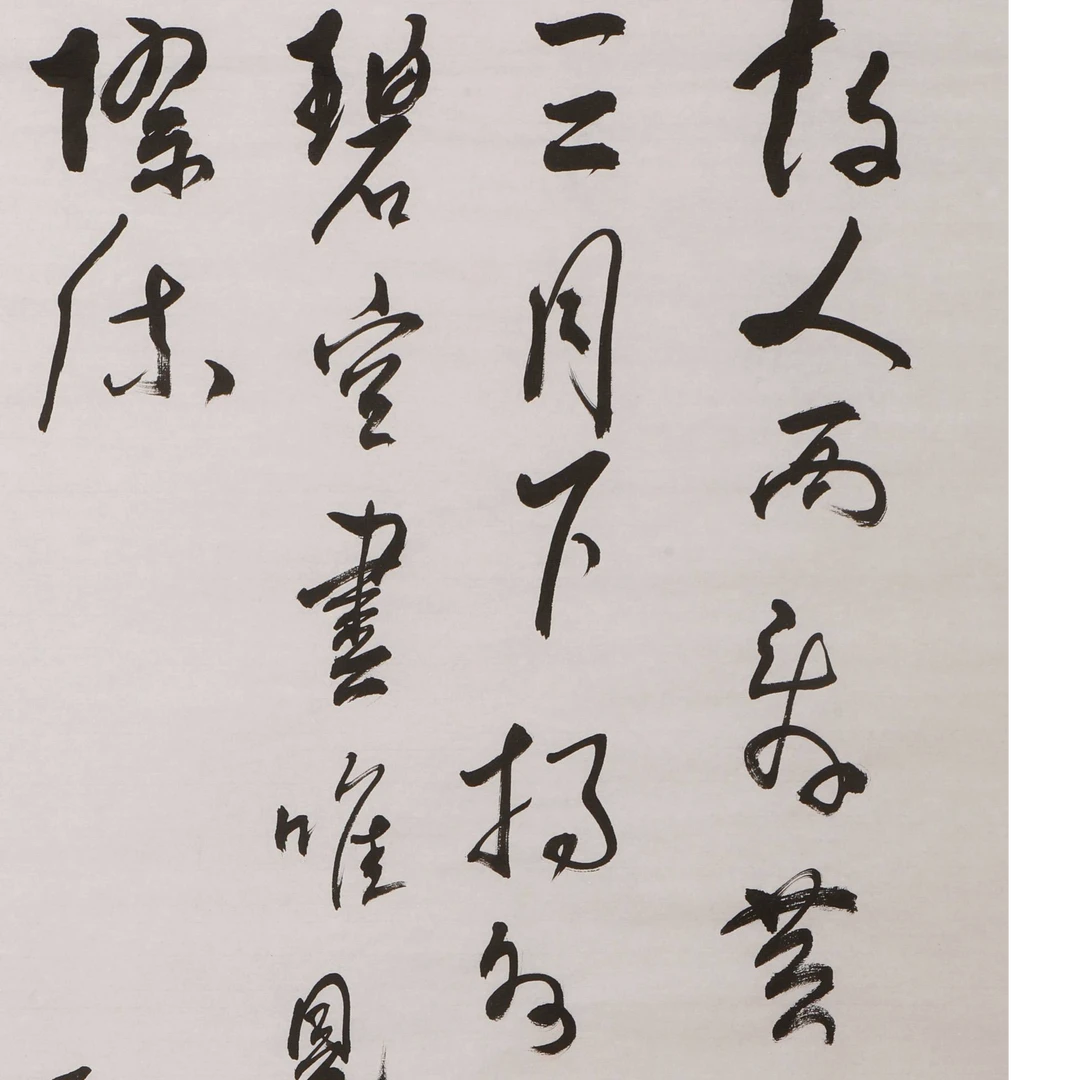 故人西辭黃
三月下揚州
碧空盡唯見
際流